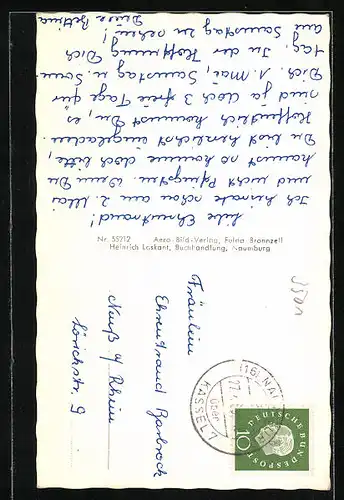 Liebe Ehrentraud!
Ich heirate schon am 2. Mai
und nicht Pfingsten. Wenn Du
kannst so komme doch bitte,
Du bist herzlichst eingeladen.
Hoffentlich kommst Du, es
sind ja doch 3 freie Tage für
Dich. 1. Mai, Samstag u. Sonn-
tag. In der Hoffnung Dich
am Samstag zu sehen!
Deine Bettina
Nr. 55212 Aero-Bild-Verlag, Fulda Bronnzell
Heinrich Laskant, Buchhandlung, Naumburg
Fräulein
Ehrentraud
Neuß a/ Rhein
9
(16) NA
über
KASSEL 7
DEUTSCHE BUNDESPOST
10